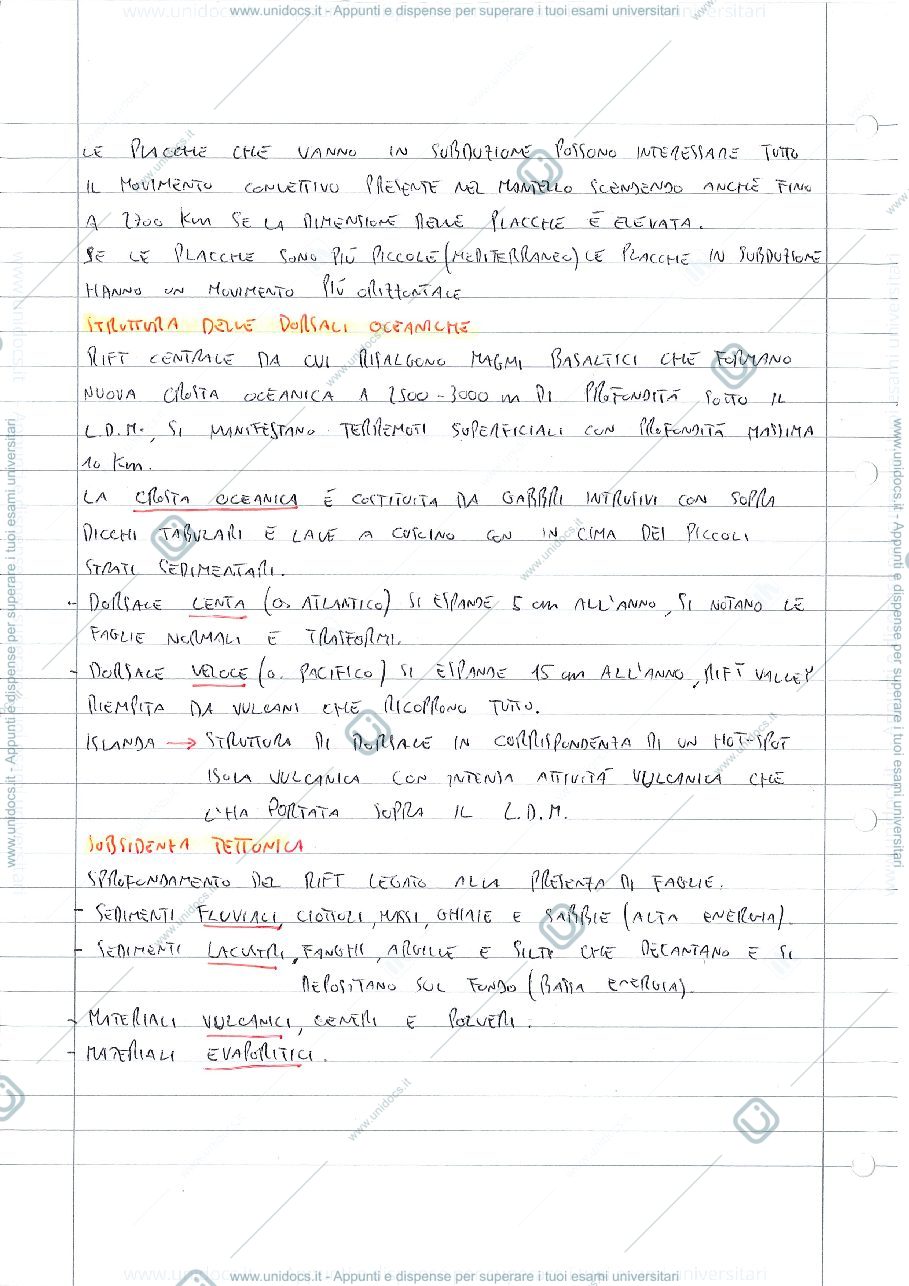 www.unidocs.it - Appunti e dispense per superare i tuoi esami universitari
LE PLACCHE CHE VANNO IN SUBDUZIONE POSSONO INTERESSARE TUTTO
IL MOVIMENTO CONVETTIVO PRESENTE NEL MANTELLO SCENDENDO ANCHE FINO
A 2700 Km SE LA DIMENSIONE DELLE PLACCHE È ELEVATA.
SE LE PLACCHE SONO PIÙ PICCOLE (MEDITERRANEO) LE PLACCHE IN SUBDUZIONE
HANNO UN MOVIMENTO PIÙ ORIZZONTALE
STRUTTURA DELLE DORSALI OCEANICHE
RIFT CENTRALE DA CUI RISALGONO MAGMI BASALTICI CHE FORMANO
NUOVA CROSTA OCEANICA A 2500-3000 m DI PROFONDITÀ SOTTO IL
L.D.M., SI MANIFESTANO TERREMOTI SUPERFICIALI CON PROFONDITÀ MASSIMA
10 Km.
LA CROSTA OCEANICA È COSTITUITA DA GABBRI INTRUSIVI CON SOPRA
DICCHI TABULARI E LAVE A CUSCINO CON IN CIMA DEI PICCOLI
STRATI SEDIMENTARI.
- DORSALE LENTA (O. ATLANTICO) SI ESPANDE 5 cm ALL'ANNO, SI NOTANO LE
FAGLIE NORMALI E TRASFORMI.
- DORSALE VELOCE (O. PACIFICO) SI ESPANDE 15 cm ALL'ANNO, RIFT VALLEY
RIEMPITA DA VULCANI CHE RICOPRONO TUTTO.
ISLANDA → STRUTTURA DI DORSALE IN CORRISPONDENZA DI UN HOT-SPOT
ISOLA VULCANICA CON INTENSA ATTIVITÀ VULCANICA CHE
L'HA PORTATA SOPRA IL L.D.M.
SUBSIDENZA TETTONICA
SPROFONDAMENTO DEL RIFT LEGATO ALLA PRESENZA DI FAGLIE.
- SEDIMENTI FLUVIALI, CIOTTOLI, MASSI, GHIAIE E SABBIE (ALTA ENERGIA).
- SEDIMENTI LACUSTRI, FANGHI, ARGILLE E SILTI CHE DECANTANO E SI
DEPOSITANO SUL FONDO (BASSA ENERGIA).
- MATERIALI VULCANICI, CENERI E POLVERI.
- MATERIALI EVAPORITICI.
www.unidocs.it - Appunti e dispense per superare i tuoi esami universitari